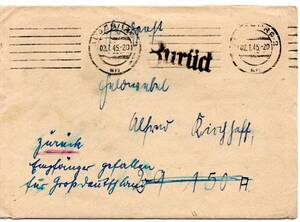 02.1.45.-20
02.1.45.-20
Zurück
Feldpost
Feldwebel
Alfred Kirchhoff
Zurück
Empfänger gefallen
für Großdeutschland
39 150 A